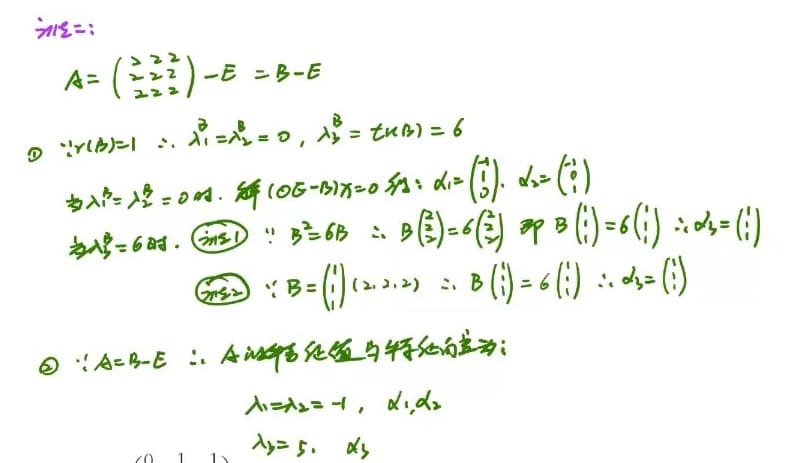 方法二:
A = (2 2 2
2 2 2
2 2 2) - E = B - E
① ∵ r(B)=1 ∴ λ₁ᴮ=λ₂ᴮ=0, λ₃ᴮ=tr(B)=6
当λ₁ᴮ=λ₂ᴮ=0时. 解(0E-B)x=0 得: α₁=(-1 1 0). α₂=(-1 0 1)
当λ₃ᴮ=6时. 方法1 ∵ B²=6B ∴ B(2 2 2)=6(2 2 2) 即 B(1 1 1)=6(1 1 1) ∴ α₃=(1 1 1)
方法2 ∵ B=(1 1 1)(2, 2, 2) ∴ B(1 1 1)=6(1 1 1) ∴ α₃=(1 1 1)
② ∵ A=B-E ∴ A的特征值与特征向量为:
λ₁=λ₂=-1, α₁,α₂
λ₃=5. α₃
(0 1 1)